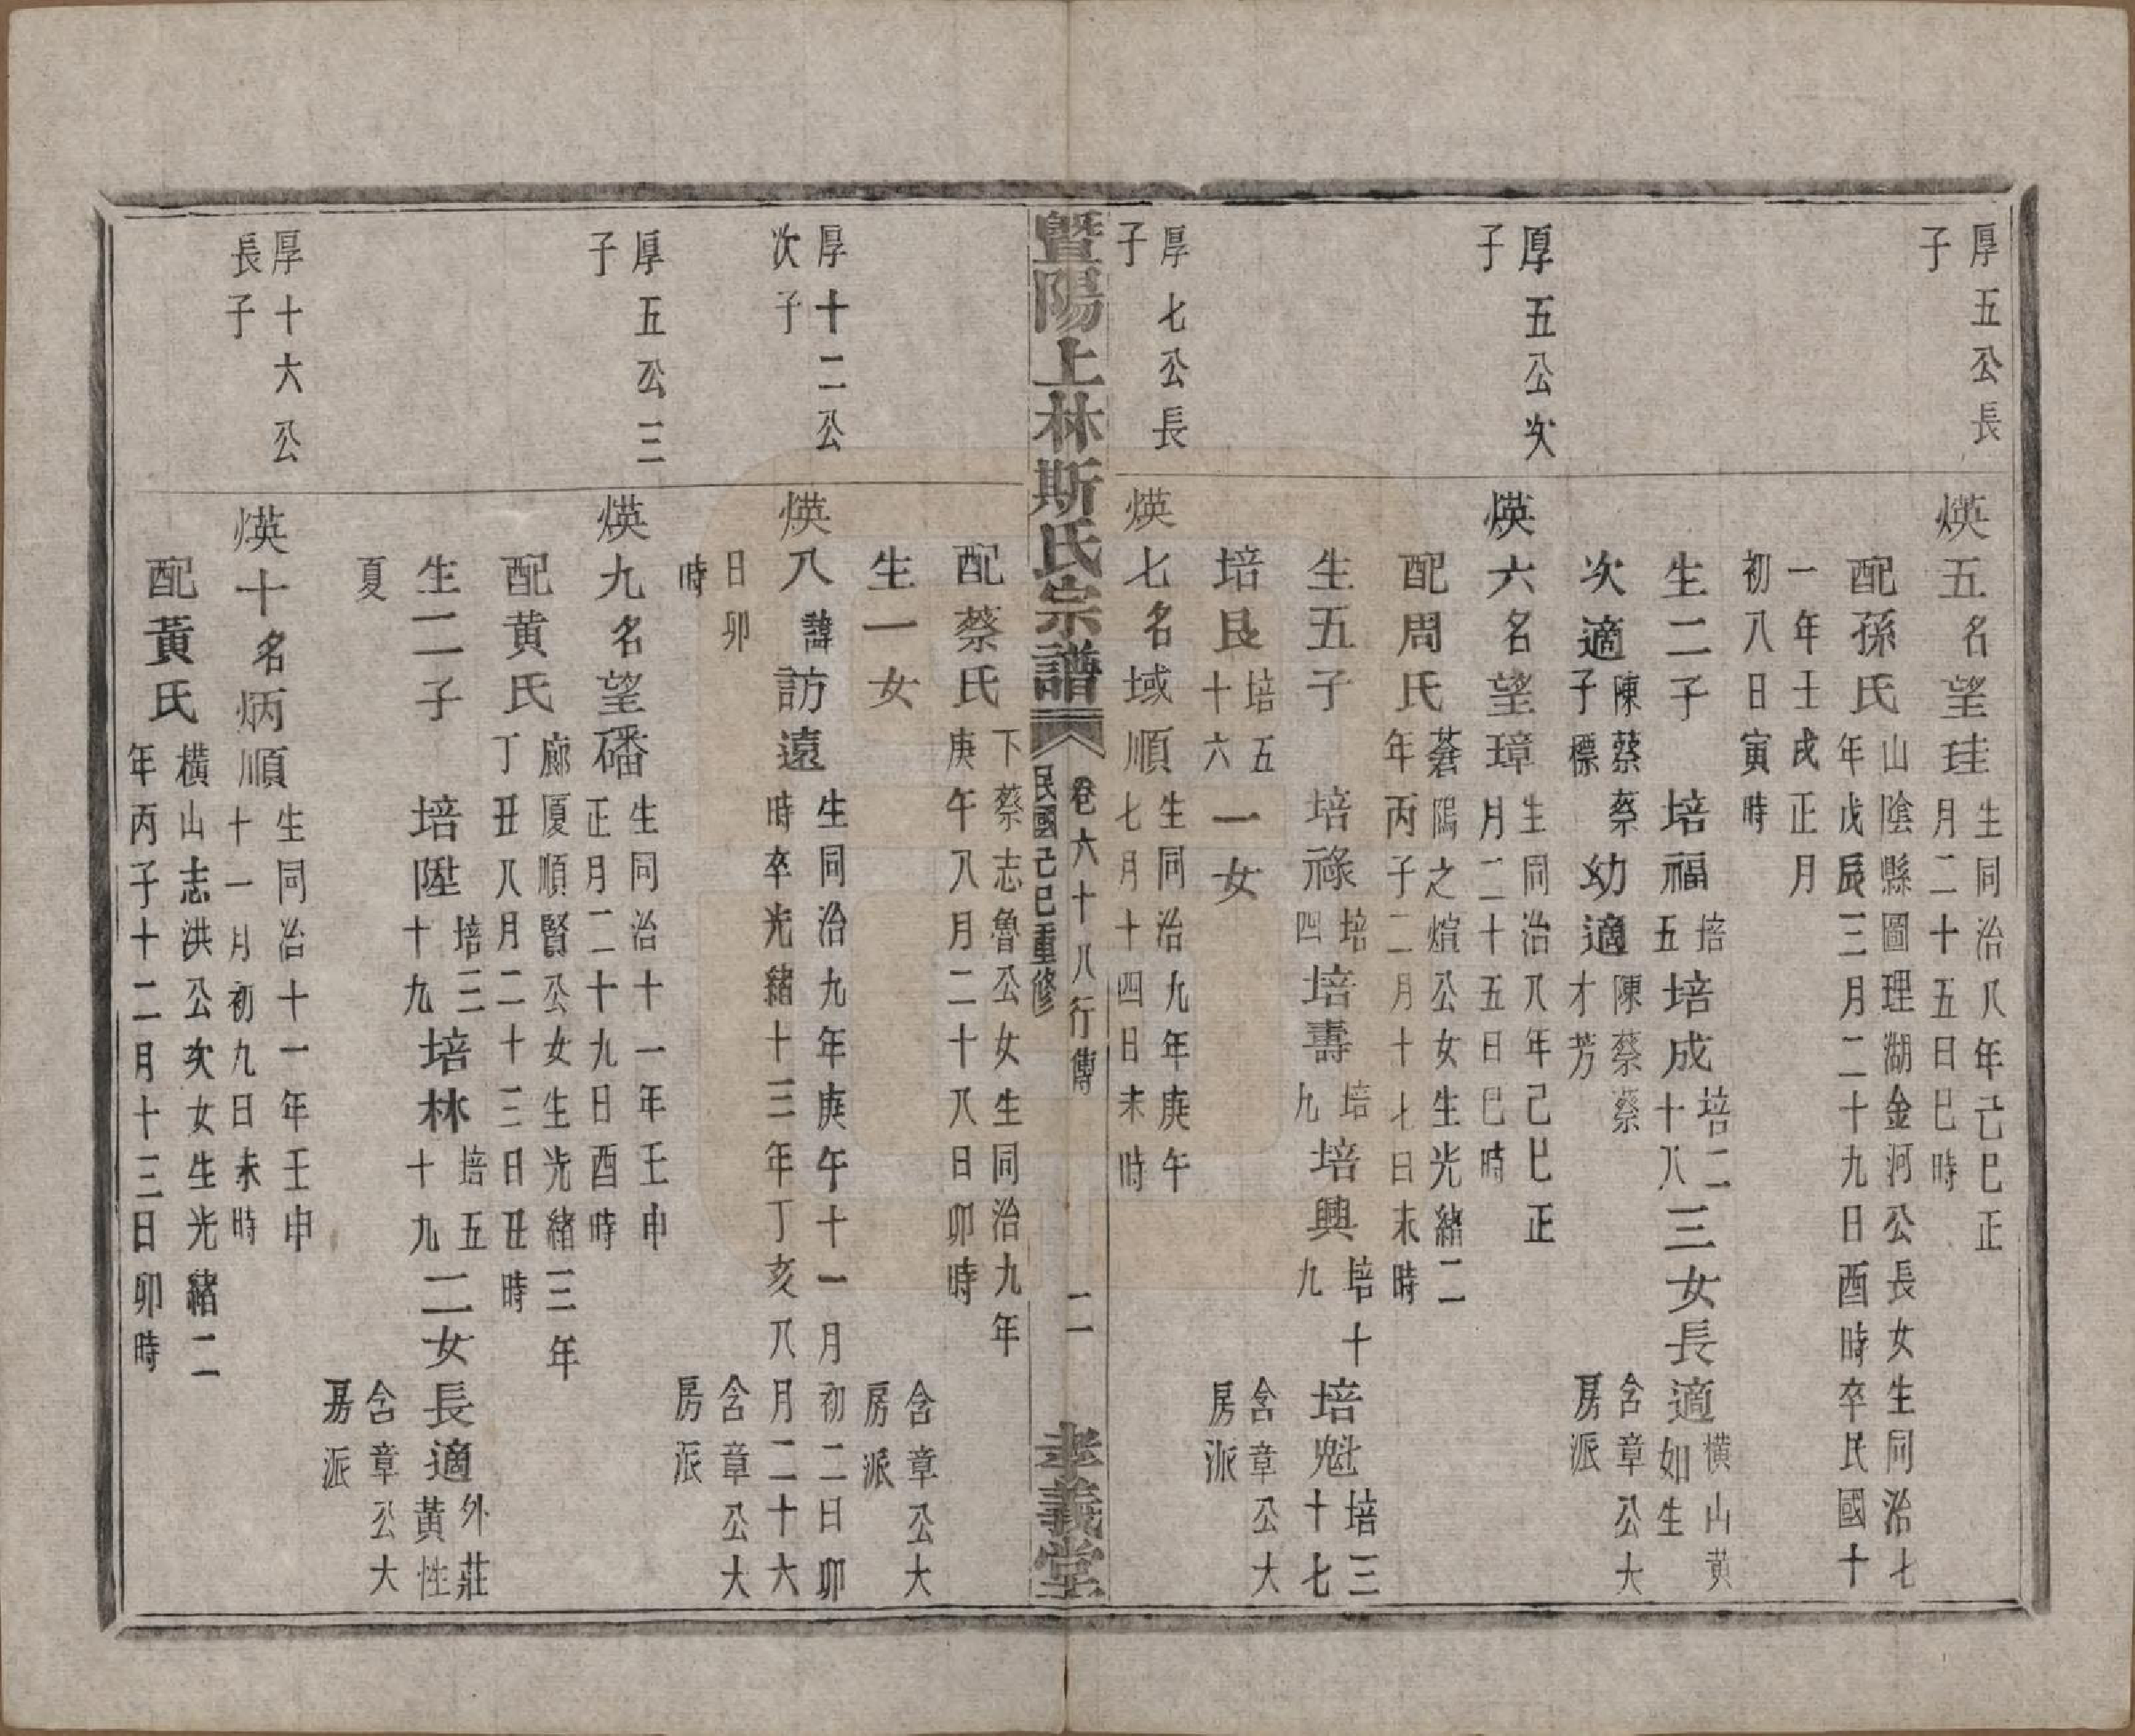 厚五公長
子
煐五名望珪
生同治八年己巳正
月二十五日巳時
配孫氏
山陰縣圖理湖金河公長女生同治七
年戊辰三月二十九日酉時卒民國十
一年壬戌正月
初八日寅時
生二子
培福
培
五
培成
培二
十八
三女長適
橫山黃
如生
次適
陳蔡蔡
子標
幼適
陳蔡蔡
才芳
含章公大
房派
厚五公次
子
煐六名望璋
生同治八年己巳正
月二十五日巳時
配周氏
之煊公女生光緒二
年丙子二月十七日未時
生五子
培祿
培
四
培壽
培
九
培興
培十
九
培魁
培三
十七
培良
培五
十六
一女
含章公大
房派
厚七公長
子
煐七名域順
生同治九年庚午
七月十四日未時
暨陽上林斯氏宗譜
卷六十八行傳
民國己巳重修
二
孝義堂
配蔡氏
下蔡志魯公女生同治九年
庚午八月二十八日卯時
生一女
含章公大
房派
厚十二公
次子
煐八諱訪遠
生同治九年庚午十一月初二日卯
時卒光緒十三年丁亥八月二十六
日卯
時
含章公大
房派
厚五公三
子
煐九名望磻
生同治十一年壬申
正月二十九日酉時
配黃氏
廊厦順賢公女生光緒三年
丁丑八月二十三日丑時
生二子
培陞
培三
十九
培林
培五
十九
二女長適
外莊
黃性
夏
含章公大
房派
厚十六公
長子
煐十名炳順
生同治十一年壬申
十一月初九日未時
配黃氏
橫山志洪公次女生光緒二
年丙子十二月十三日卯時